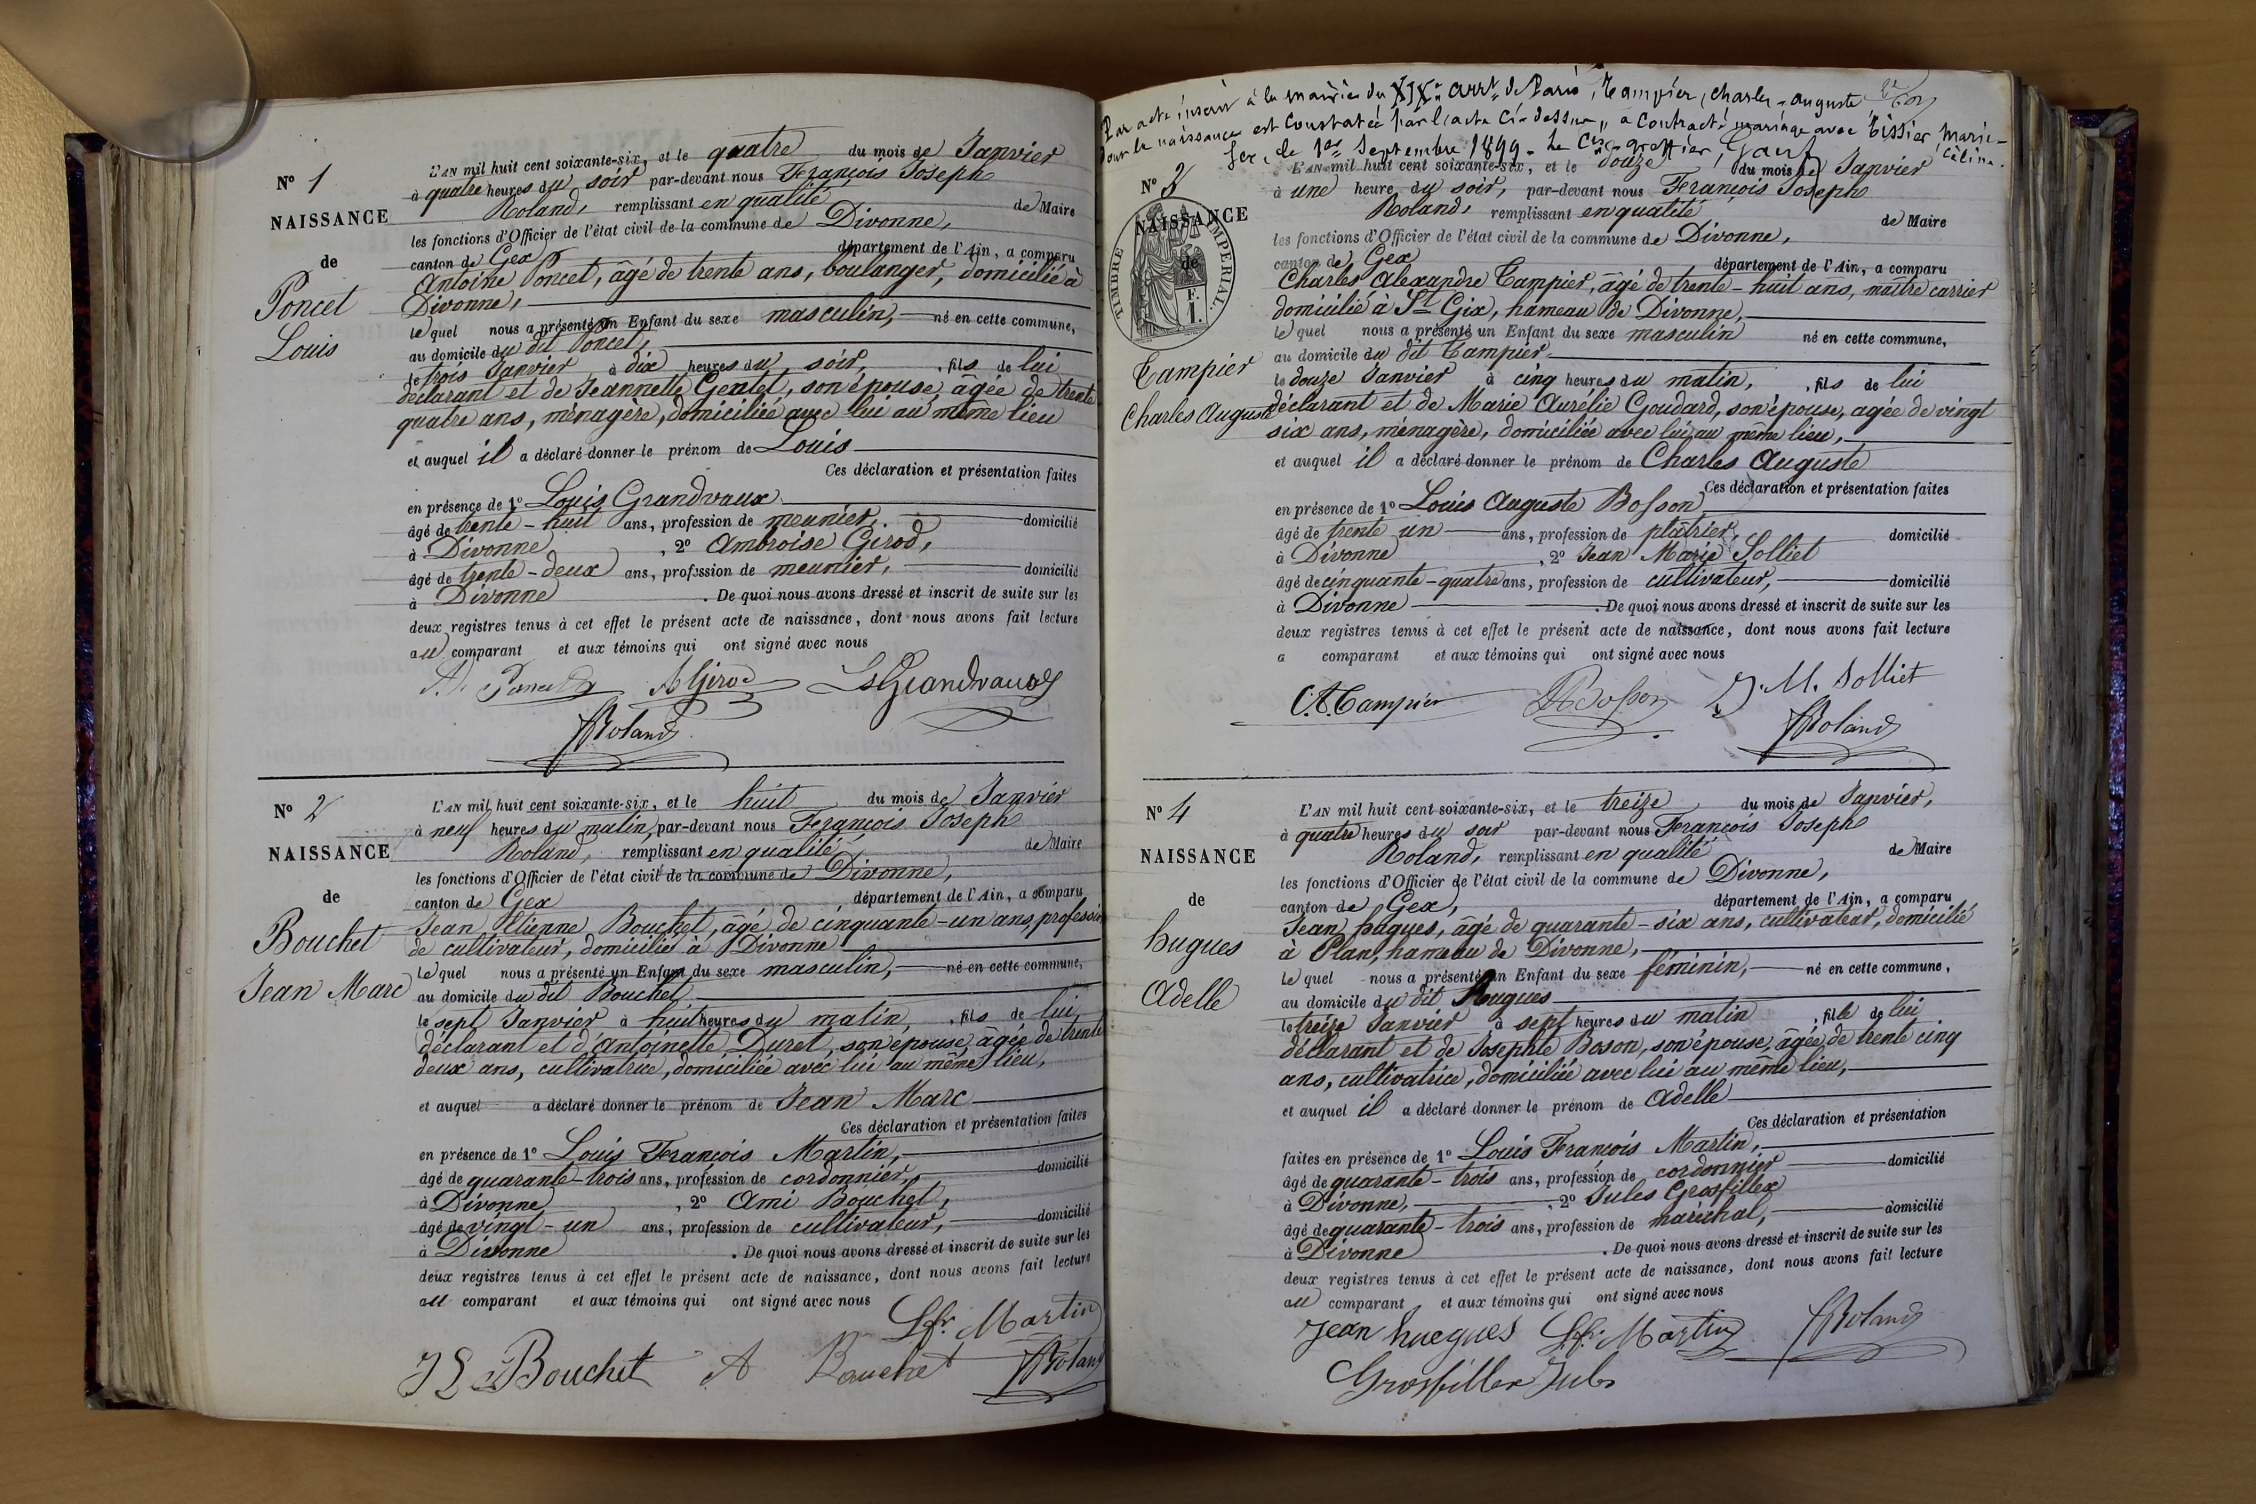 N° 1
NAISSANCE
de
Poncet
Louis
L'AN mil huit cent soixante-six, et le quatre du mois de Janvier
à quatre heures du soir par-devant nous François Joseph
Roland, remplissant en qualité de Maire
les fonctions d'Officier de l'état civil de la commune de Divonne,
canton de Gex département de l'Ain, a comparu
Antoine Poncet, âgé de trente ans, boulanger, domicilié à
Divonne,
lequel nous a présenté un Enfant du sexe masculin, né en cette commune,
au domicile du dit Poncet,
le trois Janvier à dix heures du soir, fils de lui
déclarant et de Jeannette Gentet, son épouse, âgée de trente
quatre ans, ménagère, domiciliée avec lui au même lieu
et auquel il a déclaré donner le prénom de Louis
Ces déclaration et présentation faites
en présence de 1° Louis Grandvaux
âgé de trente-huit ans, profession de meunier, domicilié
à Divonne, 2° Ambroise Girod,
âgé de trente-deux ans, profession de meunier, domicilié
à Divonne. De quoi nous avons dressé et inscrit de suite sur les
deux registres tenus à cet effet le présent acte de naissance, dont nous avons fait lecture
au comparant et aux témoins qui ont signé avec nous
A. Poncet A Girod Ls Grandvaux
Roland
N° 2
NAISSANCE
de
Bouchet
Jean Marc
L'AN mil huit cent soixante-six, et le huit du mois de Janvier
à neuf heures du matin, par-devant nous François Joseph
Roland, remplissant en qualité de Maire
les fonctions d'Officier de l'état civil de la commune de Divonne,
canton de Gex département de l'Ain, a comparu
Jean Etienne Bouchet, âgé de cinquante-un ans, profession
de cultivateur, domicilié à Divonne
lequel nous a présenté un Enfant du sexe masculin, né en cette commune,
au domicile du dit Bouchet
le sept Janvier à huit heures du matin, fils de lui
déclarant et d'Antoinette Duret, son épouse, âgée de trente
deux ans, cultivatrice, domiciliée avec lui au même lieu,
et auquel a déclaré donner le prénom de Jean Marc
Ces déclaration et présentation faites
en présence de 1° Louis François Martin,
âgé de quarante-trois ans, profession de cordonnier, domicilié
à Divonne, 2° Ami Bouchet,
âgé de vingt-un ans, profession de cultivateur, domicilié
à Divonne. De quoi nous avons dressé et inscrit de suite sur les
deux registres tenus à cet effet le présent acte de naissance, dont nous avons fait lecture
au comparant et aux témoins qui ont signé avec nous
L. fr. Martin
J E Bouchet A Bouchet Roland
Par acte inscrit à la mairie du XIXe arrt de Paris, Tampier, Charles-Auguste
dont la naissance est constatée par l'acte ci-dessous, a contracté mariage avec Tissier, Marie-
Céline.
Gex, le 1er Septembre 1899. Le Cis-greffier,
N° 3
NAISSANCE
de
TIMBRE IMPERIAL.
1 F.
Tampier
Charles Auguste
L'AN mil huit cent soixante-six, et le douze du mois de Janvier
à une heure du soir, par-devant nous François Joseph
Roland, remplissant en qualité de Maire
les fonctions d'Officier de l'état civil de la commune de Divonne,
canton de Gex département de l'Ain, a comparu
Charles Alexandre Tampier, âgé de trente-huit ans, maître carrier
domicilié à St Gix, hameau de Divonne,
lequel nous a présenté un Enfant du sexe masculin né en cette commune,
au domicile du dit Tampier
le douze Janvier à cinq heures du matin, fils de lui
déclarant et de Marie Aurélie Goudard, son épouse, agée de vingt
six ans, ménagère, domiciliée avec lui au même lieu,
et auquel il a déclaré donner le prénom de Charles Auguste
Ces déclaration et présentation faites
en présence de 1° Louis Auguste Bosson
âgé de trente un ans, profession de plâtrier, domicilié
à Divonne, 2° Jean Marie Solliet
âgé de cinquante-quatre ans, profession de cultivateur, domicilié
à Divonne. De quoi nous avons dressé et inscrit de suite sur les
deux registres tenus à cet effet le présent acte de naissance, dont nous avons fait lecture
a comparant et aux témoins qui ont signé avec nous
C. A. Tampier LA Bosson J. M. Solliet
Roland
N° 4
NAISSANCE
de
hugues
Adelle
L'AN mil huit cent soixante-six, et le treize du mois de Janvier,
à quatre heures du soir par-devant nous François Joseph
Roland, remplissant en qualité de Maire
les fonctions d'Officier de l'état civil de la commune de Divonne,
canton de Gex, département de l'Ain, a comparu
Jean hugues, âgé de quarante-six ans, cultivateur, domicilié
à Plan, hameau de Divonne,
lequel nous a présenté un Enfant du sexe féminin, né en cette commune,
au domicile du dit Hugues
le treize Janvier à sept heures du matin, fille de lui
déclarant et de Josephte Boson, son épouse, âgée de trente cinq
ans, cultivatrice, domiciliée avec lui au même lieu,
et auquel il a déclaré donner le prénom de Adelle
Ces déclaration et présentation
faites en présence de 1° Louis François Martin,
âgé de quarante-trois ans, profession de cordonnier domicilié
à Divonne, 2° Jules Grosfillex
âgé de quarante-trois ans, profession de maréchal, domicilié
à Divonne. De quoi nous avons dressé et inscrit de suite sur les
deux registres tenus à cet effet le présent acte de naissance, dont nous avons fait lecture
au comparant et aux témoins qui ont signé avec nous
Jean huegues L. fr. Martin Roland
Grosfillex Jules